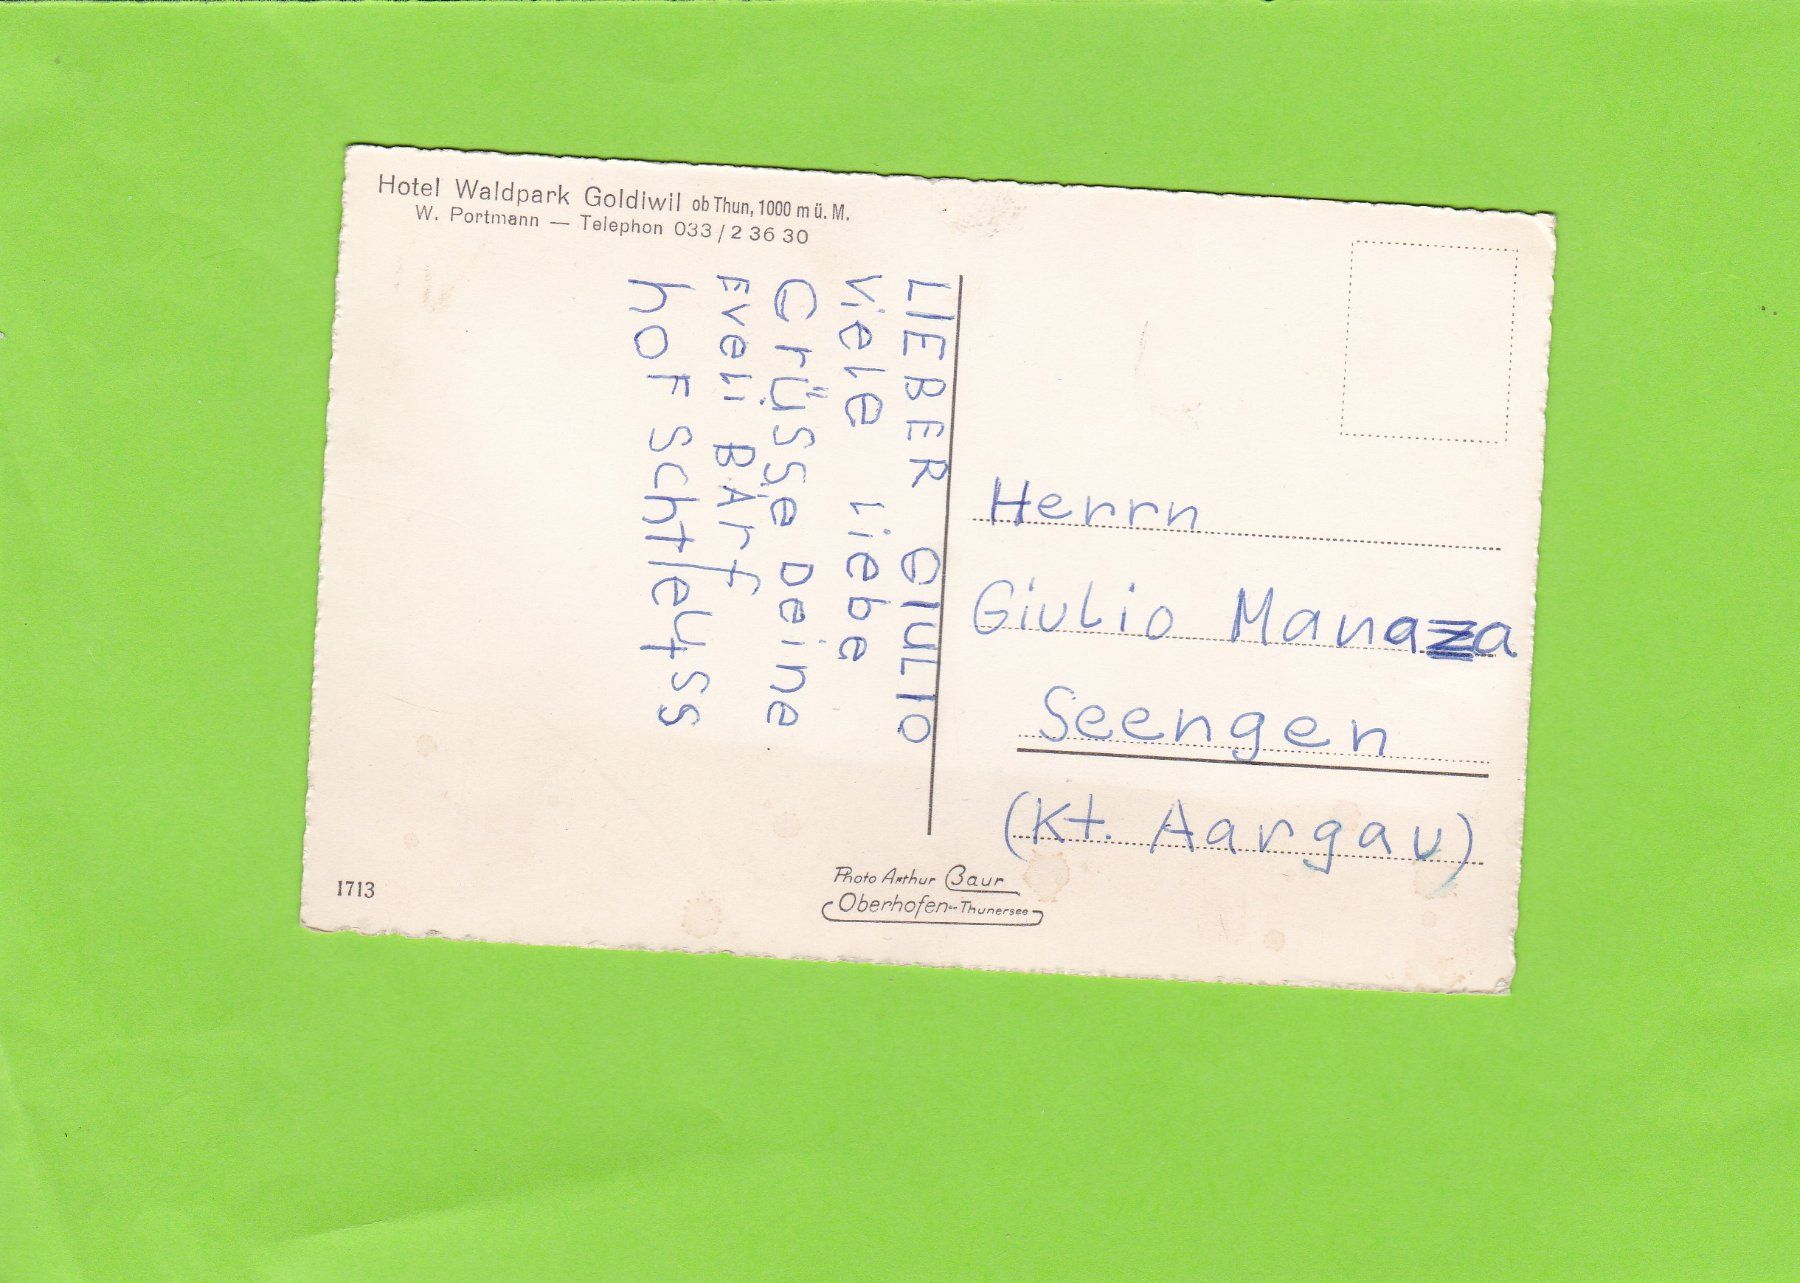 Hotel Waldpark Goldiwil ob Thun, 1000 m ü. M.
W. Portmann — Telephon 033/2 36 30
LIEBER GIULIO
Viele Liebe
Grüsse Deine
EVELi BÄrf
hOF SchtleufSS
Herrn
Giulio Manazza
Seengen
(Kt. Aargau)
1713
Photo Arthur Baur
Oberhofen-Thunersee